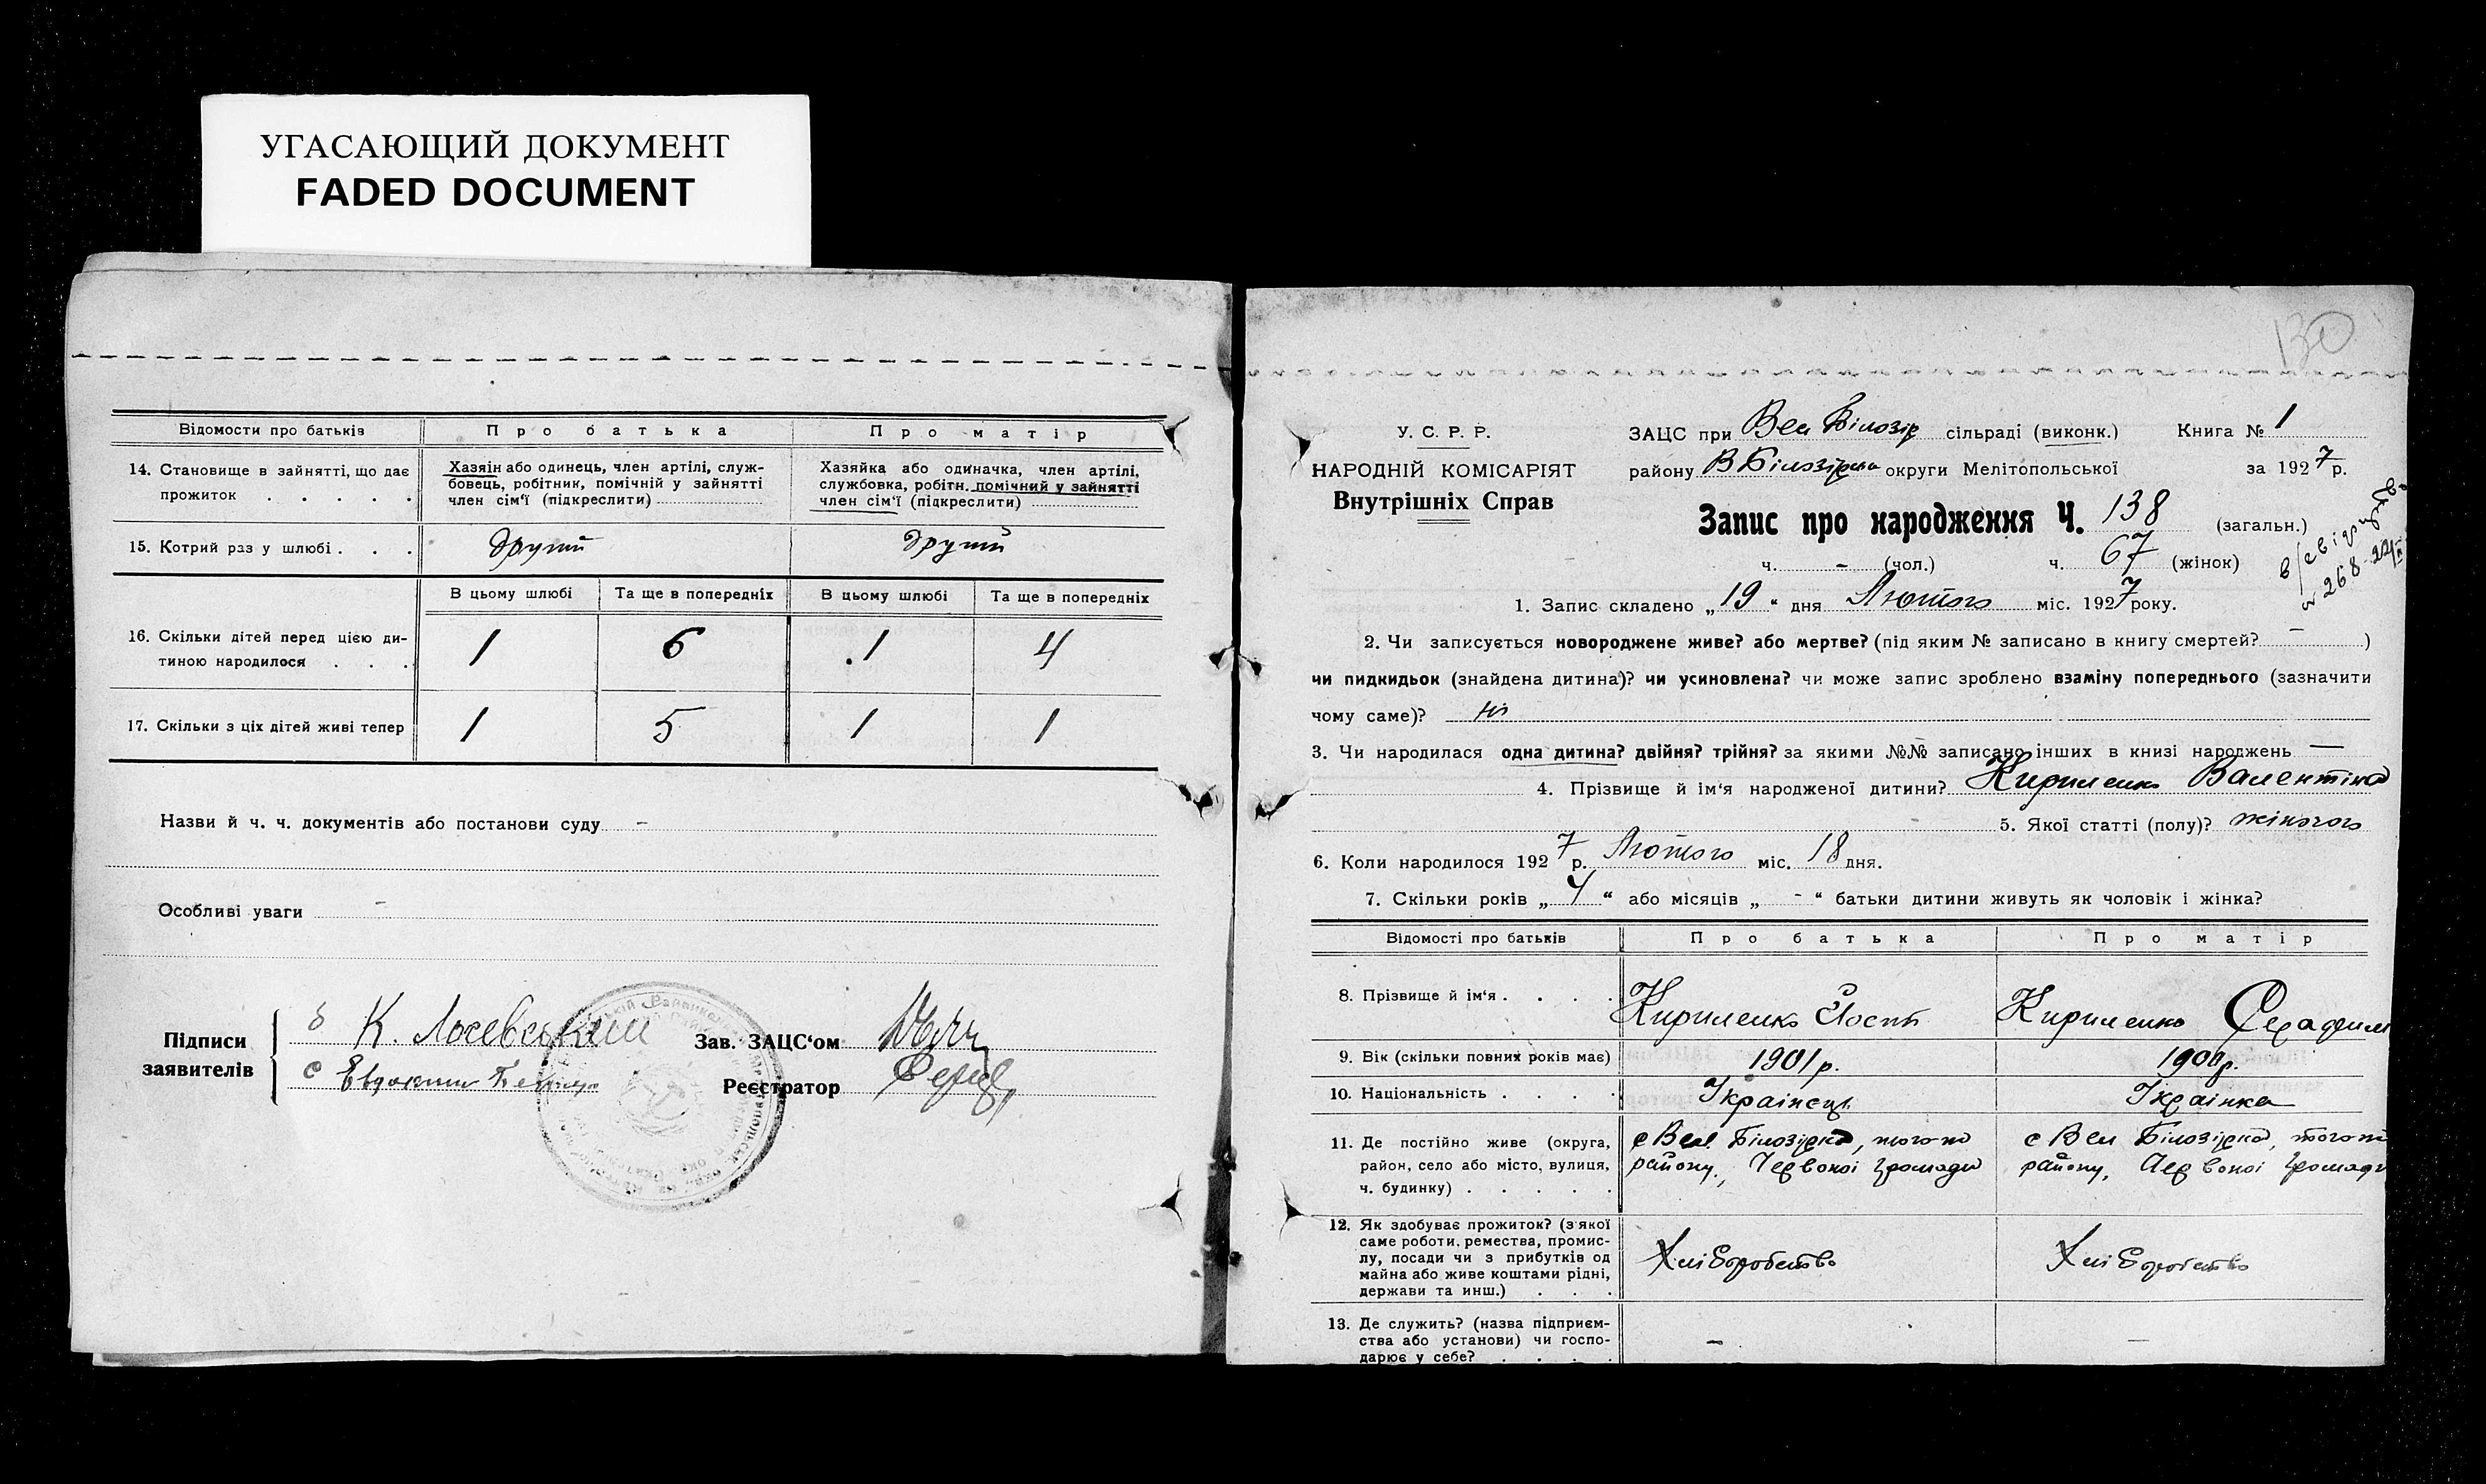 УГАСАЮЩИЙ ДОКУМЕНТ
FADED DOCUMENT
Відомости про батьків Про батька Про матір
14. Становище в зайнятті, що дає прожиток . . . . .
Хазяін або одинець, член артілі, служ-
бовець, робітник, помічній у зайнятті
член сім‘ї (підкреслити)
Хазяйка або одиначка, член артілі,
службовка, робітн. помічний у зайнятті
член сім‘ї (підкреслити)
15. Котрий раз у шлюбі . . . другий другий
В цьому шлюбі Та ще в попередніх В цьому шлюбі Та ще в попередніх
16. Скільки дітей перед цією ди-
тиною народилося . . . 1 6 1 4
17. Скільки з ціх дітей живі тепер 1 5 1 1
Назви й ч. ч. документів або постанови суду –
Особливі уваги –
Підписи
заявителів
б К.
с
Зав. ЗАЦС‘ом
Реєстратор
130
У. С. Р. Р.
НАРОДНІЙ КОМІСАРІЯТ
Внутрішніх Справ
ЗАЦС при Вел Білозір сільраді (виконк.) Книга № 1
району В Білозірка округи Мелітопольської за 1927 р.
Запис про народження Ч. 138 (загальн.)
ч. – (чол.) ч. 67 (жінок)
268
1. Запис складено „19“ дня Лютого міс. 1927 року.
2. Чи записується новороджене живе? або мертве? (під яким № записано в книгу смертей? – )
чи пидкидьок (знайдена дитина)? чи усиновлена? чи може запис зроблено взаміну попереднього (зазначити
чому саме)? ні
3. Чи народилася одна дитина? двійня? трійня? за якими №№ записано інших в книзі народжень —
4. Прізвище й ім‘я народженої дитини? Кириленко Валентіна
5. Якої статті (полу)? жіногого
6. Коли народилося 1927 р. Лютого міс. 18 дня.
7. Скільки років „4“ або місяців „-“ батьки дитини живуть як чоловік і жінка?
Відомості про батьків Про батька Про матір
8. Прізвище й ім‘я . . . . Кириленко Йосип Кириленко
9. Вік (скільки повних років має) 1901 р. 1900 р.
10. Національність . . . . Українець Українка
11. Де постійно живе (округа,
район, село або місто, вулиця,
ч. будинку) . . . . .
с Вел. Білозірка, того ж
району, Червоної громади
с Вел Білозірка, того ж
району, Червоної громади
12. Як здобуває прожиток? (з якої
саме роботи, ремества, промис-
лу, посади чи з прибутків од
майна або живе коштами рідні,
держави та инш.) . . .
Хліборобство Хліборобство
13. Де служить? (назва підприєм-
ства або установи) чи госпо-
дарює у себе? . . . . – —